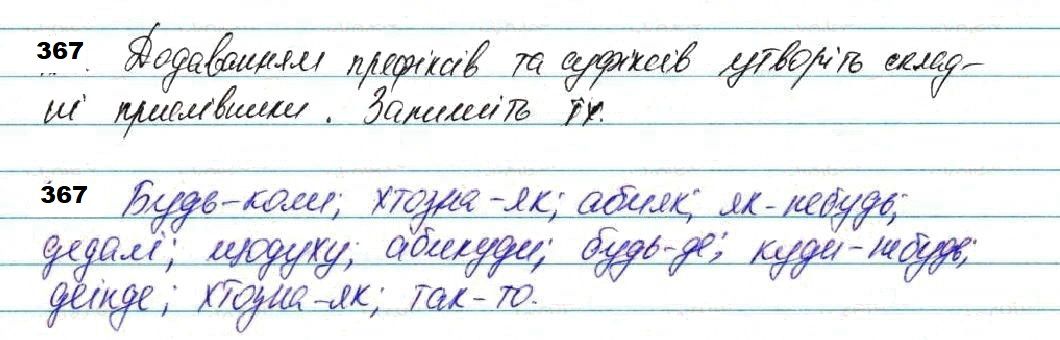 367 Додаванням префіксів та суфіксів утворіть склад-
ні прислівники. Запишіть їх.
367 Будь-коли; хтозна-як; абияк; як-небудь;
дедалі; щодуху; абикуди; будь-де; куди-небудь;
деінде; хтозна-як; так-то.